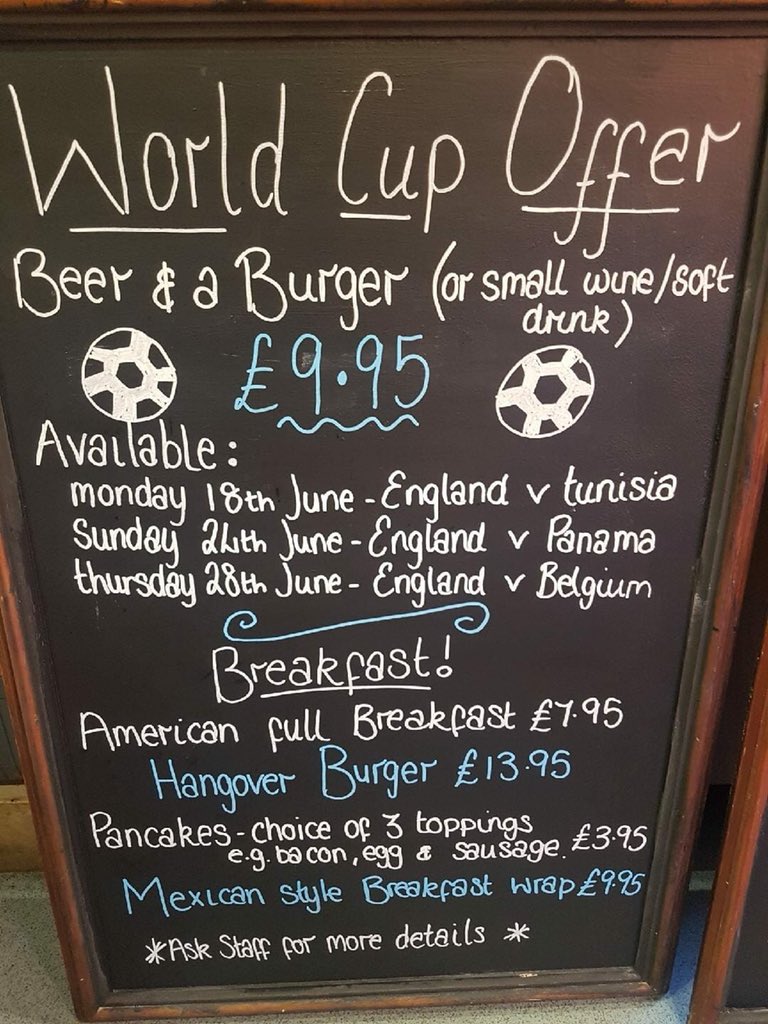 World Cup Offer
Beer & a Burger (or small wine/soft
drink)
£9.95
Available:
monday 18th June - England v tunisia
Sunday 24th June - England v Panama
thursday 28th June - England v Belgium
Breakfast!
American full Breakfast £7.95
Hangover Burger £13.95
Pancakes - choice of 3 toppings £3.95
e.g. bacon, egg & sausage.
Mexican style Breakfast wrap £9.95
*Ask Staff for more details *